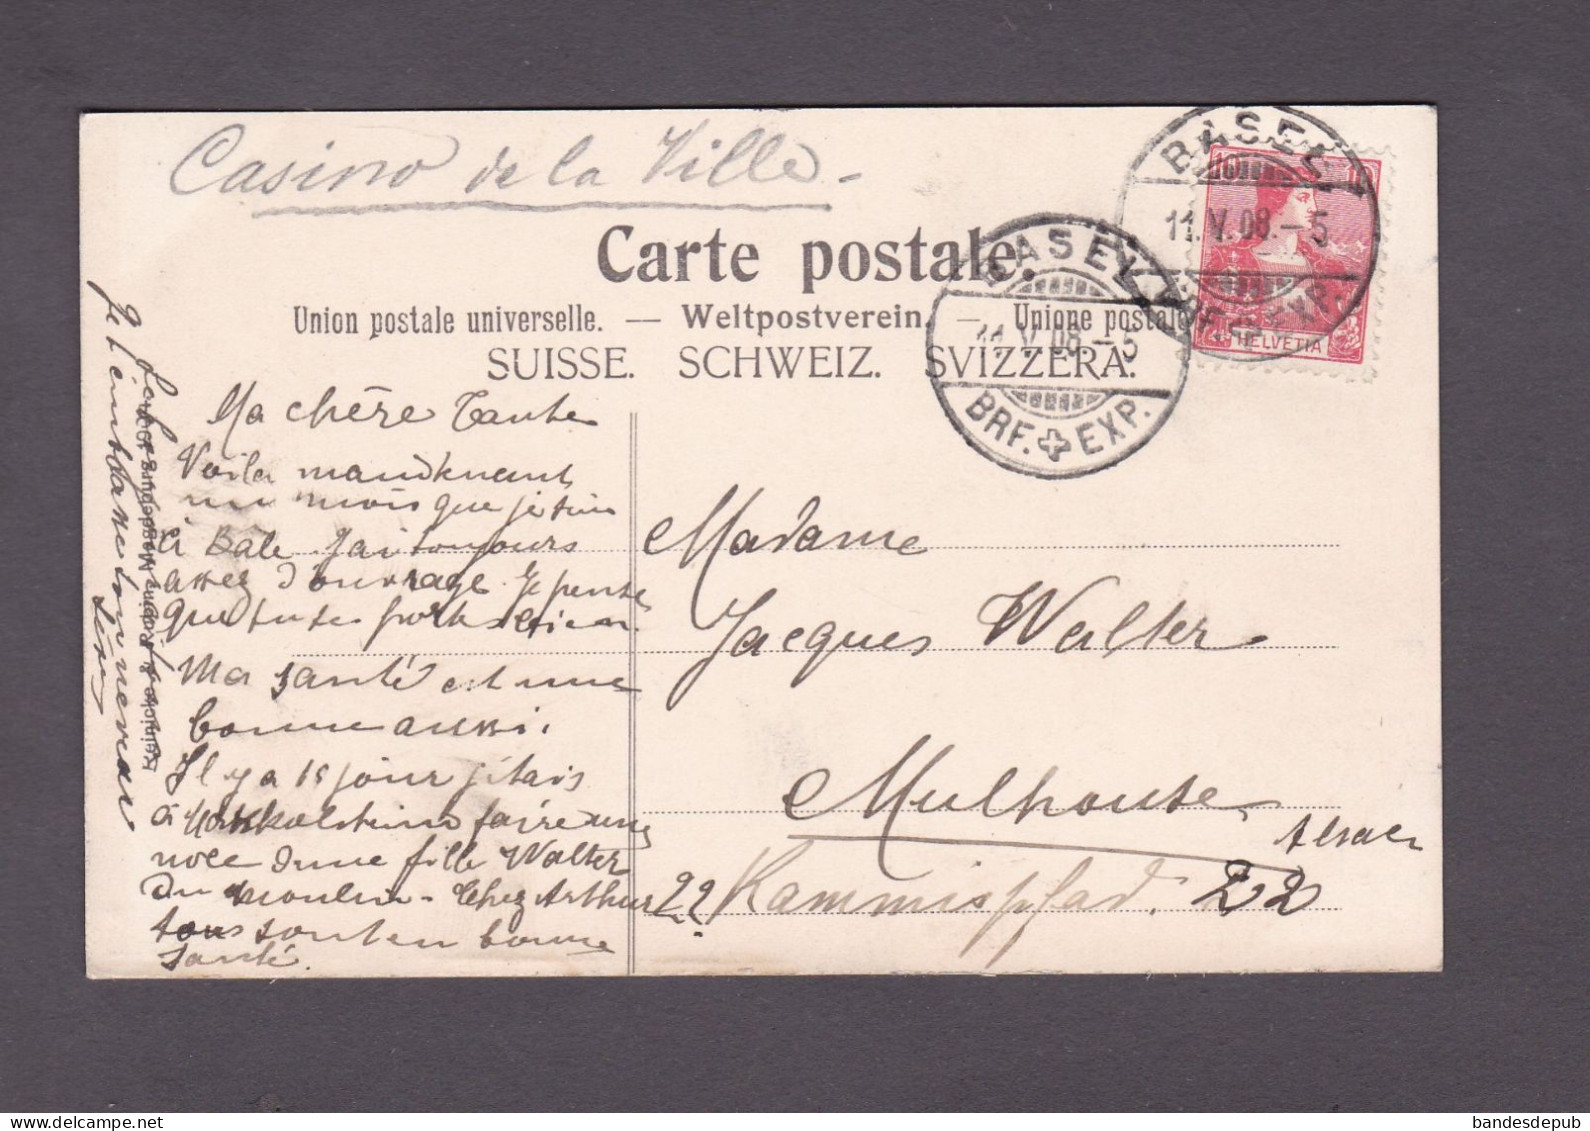 Casino de la Ville -
Carte postale.
Union postale universelle. — Weltpostverein. — Unione postale
SUISSE. SCHWEIZ. SVIZZERA.
BASEL
11.V.08.-5
BRF. EXP.
BASEL
11.V.08.-5
BRF. EXP.
10
HELVETIA
Ma chère Tante
Voila maintenant
un mois que je suis
à Bâle J'ai toujours
assez d'ouvrage. Je pense
que tu te portes bien.
Ma santé est une
bonne aussi.
Il y a 15 jour j'étais
à faire une
noce d'une fille Walter
du moulin - Chez Arthur
tous sont en bonne
santé.
Je t'embrasse ton neveu
Madame
Jacques Walter
Mulhouse
Alsace
22 Kammispfad. 22
bandesdepub